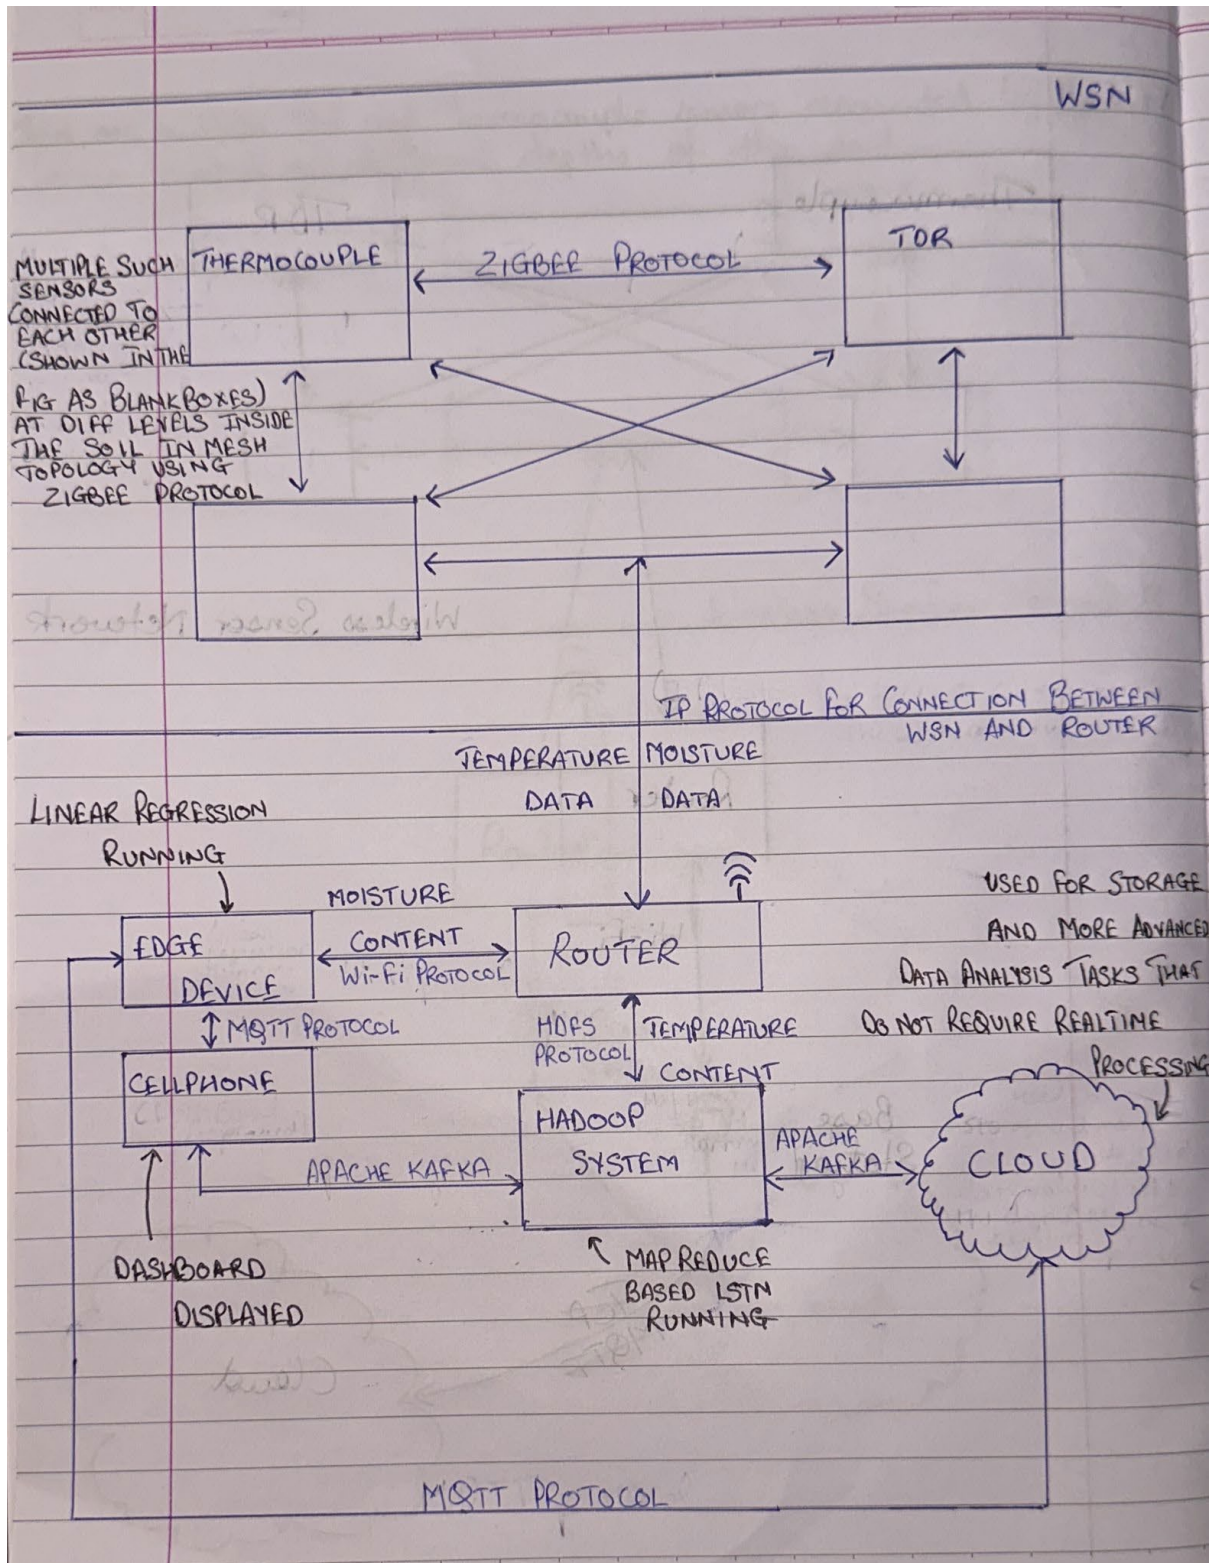 WSN
THERMOCOUPLE
ZIGBEE PROTOCOL
TDR
MULTIPLE SUCH
SENSORS
CONNECTED TO
EACH OTHER
(SHOWN IN THE
FIG AS BLANK BOXES)
AT DIFF LEVELS INSIDE
THE SOIL IN MESH
TOPOLOGY USING
ZIGBEE PROTOCOL
IP PROTOCOL FOR CONNECTION BETWEEN
WSN AND ROUTER
TEMPERATURE
DATA
MOISTURE
DATA
LINEAR REGRESSION
RUNNING
EDGE
DEVICE
MOISTURE
CONTENT
Wi-Fi PROTOCOL
ROUTER
USED FOR STORAGE
AND MORE ADVANCED
DATA ANALYSIS TASKS THAT
DO NOT REQUIRE REALTIME
PROCESSING
MQTT PROTOCOL
HDFS
PROTOCOL
TEMPERATURE
CONTENT
CELLPHONE
HADOOP
SYSTEM
APACHE KAFKA
APACHE
KAFKA
CLOUD
DASHBOARD
DISPLAYED
MAPREDUCE
BASED LSTN
RUNNING
MQTT PROTOCOL